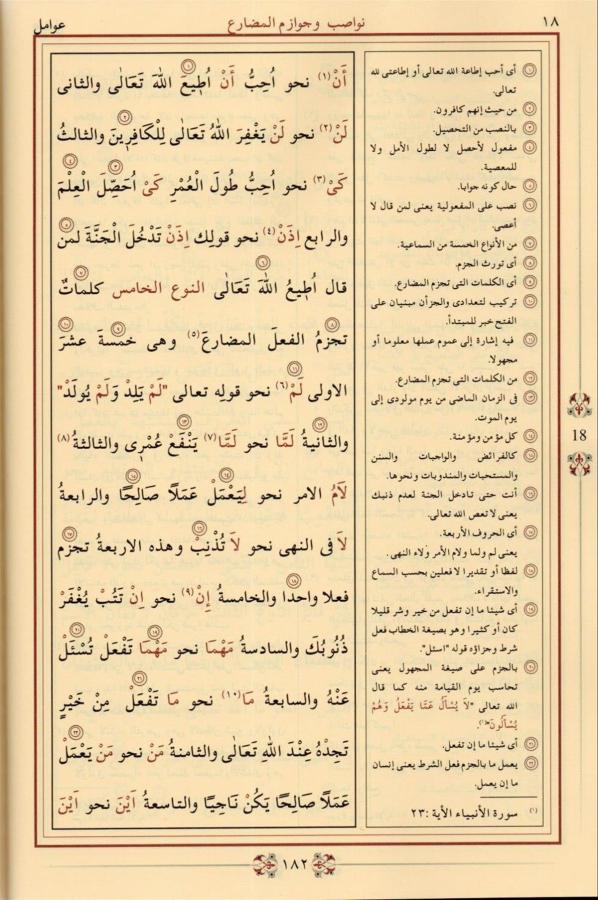 ١٨
نواصب وجوازم المضارع
عوامل
أَنْ (١) نحو اُحِبُّ أَنْ اُطِيعَ اللهَ تَعَالٰى والثانى
لَنْ (٢) نحو لَنْ يَغْفِرَ اللهُ تَعَالٰى لِلْكَافِرِينَ والثالثُ
كَىْ (٣) نحو اُحِبُّ طُولَ الْعُمْرِ كَىْ اُحَصِّلَ الْعِلْمَ
والرابع اِذَنْ (٤) نحو قولِك اِذَنْ تَدْخُلَ الْجَنَّةَ لمن
قال اُطِيعُ اللهَ تَعَالٰى النوع الخامس كلماتٌ
تجزمُ الفعلَ المضارعَ (٥) وهى خمسةَ عشرَ
الاولى لَمْ (٦) نحو قولِه تعالى "لَمْ يَلِدْ وَلَمْ يُولَدْ"
والثانيةُ لَمَّا نحو لَمَّا (٧) يَنْفَعْ عُمْرِى والثالثةُ (٨)
لَامُ الامر نحو لِيَعْمَلْ عَمَلًا صَالِحًا والرابعةُ
لَا فى النهى نحو لَا تُذْنِبْ وهذه الاربعةُ تجزم
فعلا واحدا والخامسةُ إِنْ (٩) نحو اِنْ تَتُبْ يُغْفَرْ
ذُنُوبُكَ والسادسةُ مَهْمَا نحو مَهْمَا تَفْعَلْ تُسْئَلْ
عَنْهُ والسابعةُ مَا (١٠) نحو مَا تَفْعَلْ مِنْ خَيْرٍ
تَجِدْهُ عِنْدَ اللهِ تَعَالٰى والثامنةُ مَنْ نحو مَنْ يَعْمَلْ
عَمَلًا صَالِحًا يَكُنْ نَاجِيًا والتاسعةُ اَيْنَ نحو اَيْنَ
أى أحب إطاعة الله تعالى أو إطاعتى لله
تعالى.
من حيث إنهم كافرون.
بالنصب من التحصيل.
مفعول لأحصل لا لطول الأمل ولا
للمعصية.
حال كونه جوابا.
نصب على المفعولية يعنى لمن قال لا
أعصى.
من الأنواع الخمسة من السماعية.
أى تورث الجزم.
أى الكلمات التى تجزم المضارع.
تركيب لتعدادى والجزأن مبنيان على
الفتح خبر للمبتدأ.
فيه إشارة إلى عموم عملها معلوما أو
مجهولا.
من الكلمات التى تجزم المضارع.
فى الزمان الماضى من يوم مولودى إلى
يوم الموت.
كل مؤمن ومؤمنة.
كالفرائض والواجبات والسنن
والمستحبات والمندوبات ونحوها.
أنت حتى تدخل الجنة لعدم ذنبك
يعنى لا تعص الله تعالى.
أى الحروف الأربعة.
يعنى لم ولما ولام الأمر ولاء النهى.
لفظا أو تقديرا لا فعلين بحسب السماع
والاستقراء.
أى شيئا ما إن تفعل من خير وشر قليلا
كان أو كثيرا وهو بصيغة الخطاب فعل
شرط وجزاؤه قوله "اسئل".
بالجزم على صيغة المجهول يعنى
تحاسب يوم القيامة منه كما قال
الله تعالى "لَا يُسْأَلُ عَمَّا يَفْعَلُ وَهُمْ
يُسْأَلُونَ" (١).
أى شيئا ما إن تفعل.
يعمل ما بالجزم فعل الشرط يعنى إنسان
ما إن يعمل.
(١) سورة الأنبياء الأية :٢٣
18
١٨٢